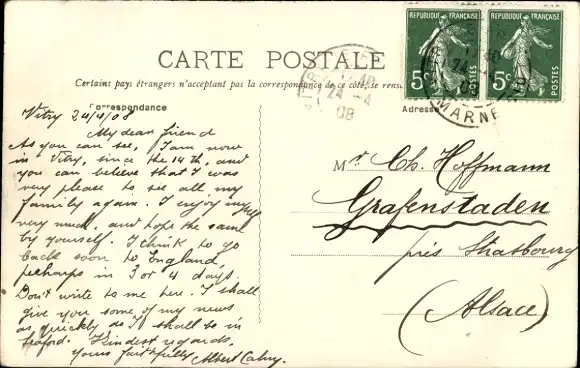 CARTE POSTALE
Certains pays étrangers n'acceptant pas la correspondance de ce côté, se rens
Correspondance
Adresse
REPUBLIQUE FRANÇAISE
5c
POSTES
REPUBLIQUE FRANÇAISE
5c
POSTES
24 -4
08
MARNE
Vitry 24/4/08
My dear friend
As you can see, I am now
in Vitry, since the 14th, and
you can believe that I was
very please to see all my
family again. I enjoy myself
very much, and hope the same
by yourself. I think to go
back soon to England
perhaps in 3 or 4 days.
Don't write to me here. I shall
give you some of my news
as quickly as I shall be in
Seaford. Kindest regards,
Yours faithfully Albert
Mr Ch. Hoffmann
Grafenstaden
près Strasbourg
(Alsace)